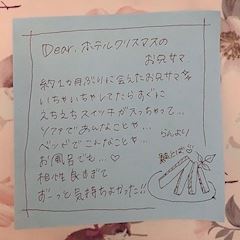 Dear. ホテルクリスマスの
お兄サマ
約1か月ぶりに会えたお兄サマ
いちゃいちゃしてたらすぐに
えちえちスイッチが入っちゃって…
ソファであんなことや…
ベッドでこんなことや…
お風呂でも…♡
相性良すぎて
ずーっと気持ちよかった!!
らんより